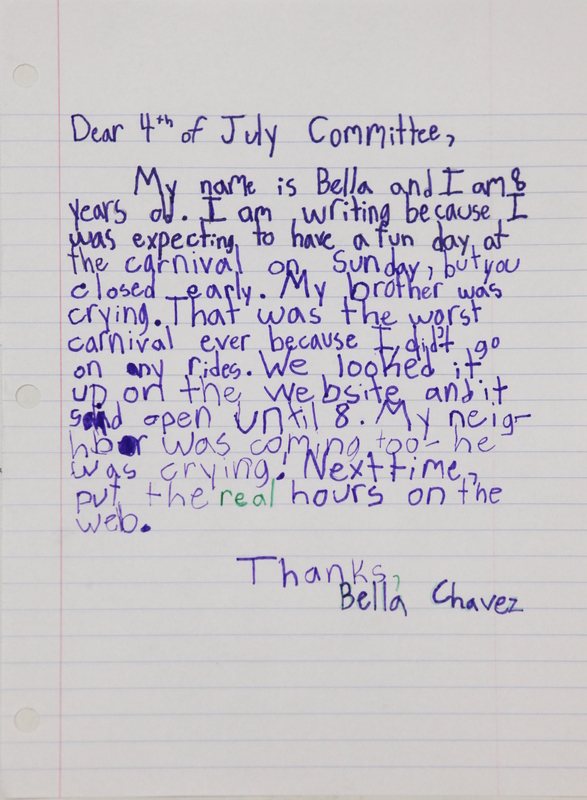 Dear 4th of July Committee,
My name is Bella and I am 8
years old. I am writing because I
was expecting to have a fun day at
the carnival on Sunday, but you
closed early. My brother was
crying. That was the worst
carnival ever because I didn't go
on any rides. We looked it
up on the website and it
said open until 8. My neig-
hbor was coming too- he
was crying! Next time,
put the real hours on the
web.
Thanks,
Bella Chavez